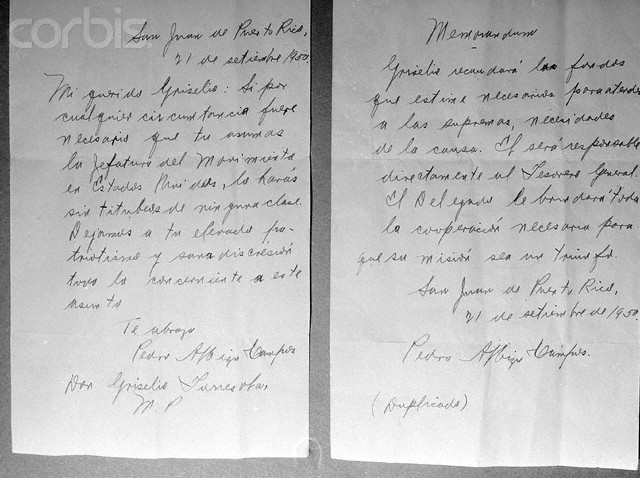 corbis.
San Juan de Puerto Rico,
21 de setiembre 1950.
Mi querido Griselio: Si por
cualquier circunstancia fuere
necesario que tu asumas
la jefatura del Movimiento
en Estados Unidos, lo harás
sin titubeos de ninguna clase.
Dejamos a tu elevado pa-
triotismo y sana discreción
todo lo concerniente a este
asunto
Te abraza
Pedro Albizu Campos
Don Griselio Torresola,
M. P.
Memorandum
Griselio recaudará los fondos
que estime necesarios para atender
a las supremas necesidades
de la causa. El será responsable
directamente al Tesorero General.
El Delegado le brindará toda
la cooperación necesaria para
que su misión sea un triunfo.
San Juan de Puerto Rico,
21 de setiembre de 1950.
Pedro Albizu Campos.
(Duplicado)